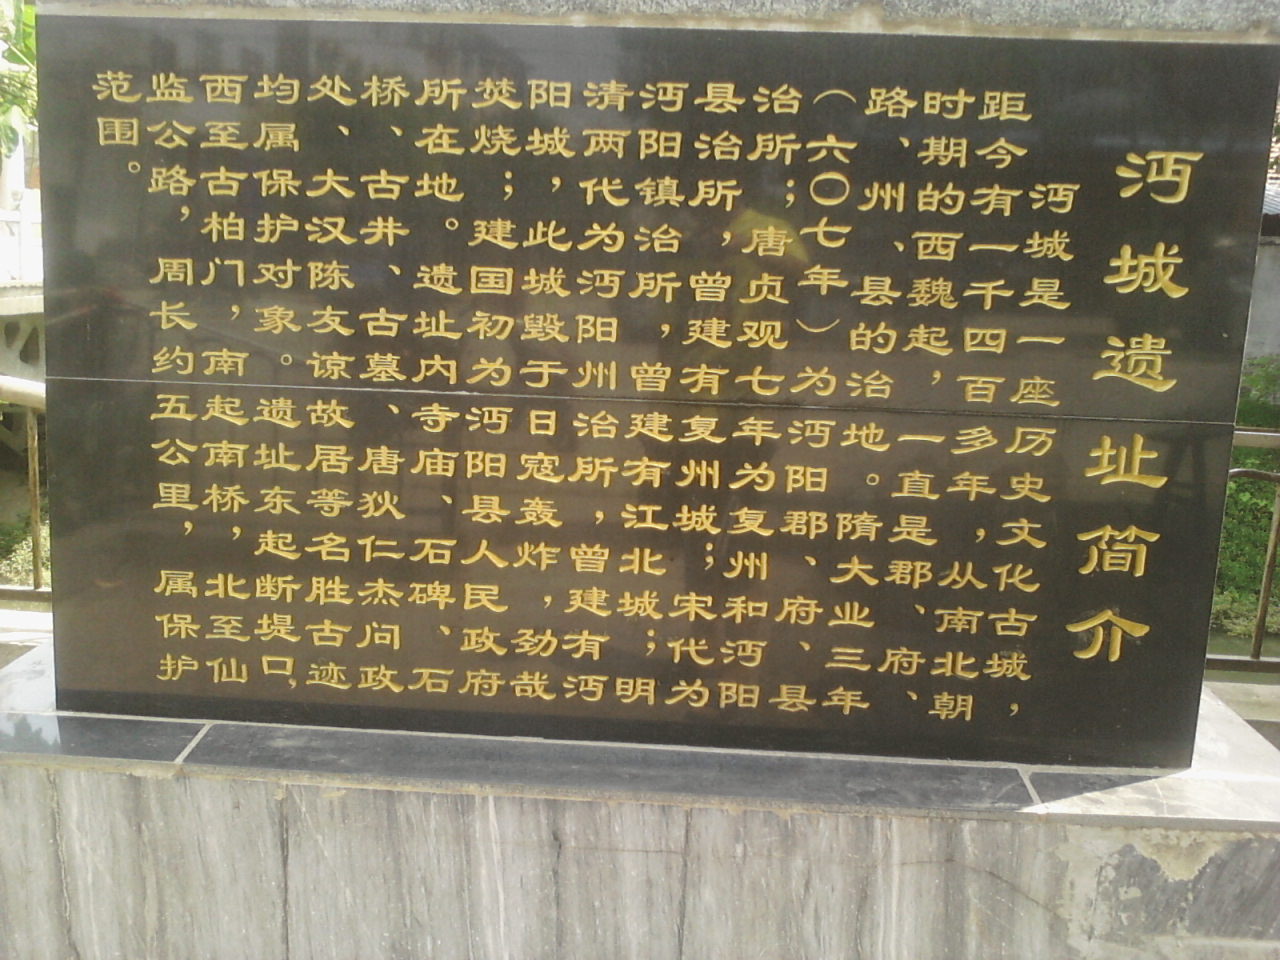 沔城遗址简介
沔城是一座历史文化古城，
距今有一千四百多年，从南北朝
时期的西魏起，一直是郡、府、
路、州、县的治地。隋大业三年
（六〇七年）为沔阳郡、府、县
治所；唐贞观七年为复州和沔阳
县治所，曾建有复州城；宋代为
沔阳镇治所，曾建有江北城；明
清两代为沔阳州治所，曾建有沔
阳城，此城毁于日寇轰炸，劲哉
焚烧；建国初为沔阳县人民政府
所在地。遗址内寺庙、石碑、石
桥、古井、古墓、唐狄仁杰问政
处、大汉陈友谅故居等名胜古迹
均属保护对象。遗址东起断堤口，
西至古柏门，南起南桥，北至仙
监公路，周长约五公里，属保护
范围。